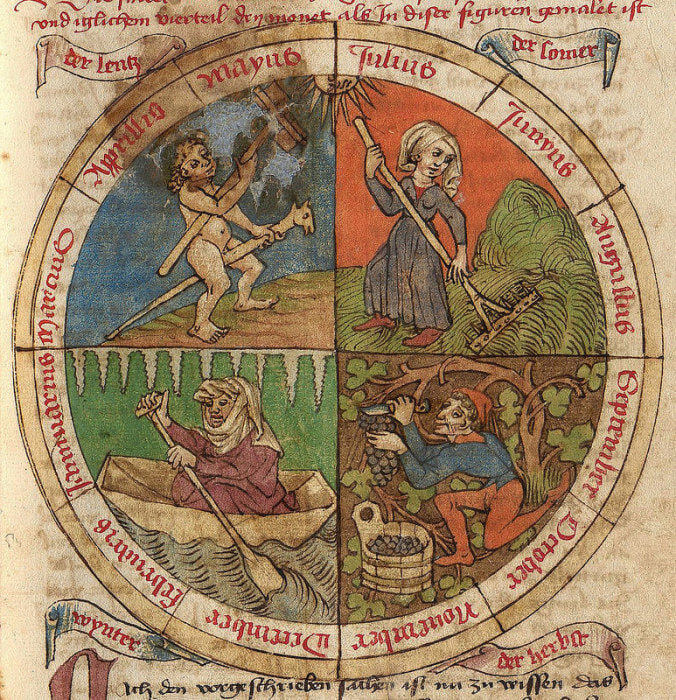 vnd iglichem vierteil dry monet als In diser figuren gemalet ist
der lentz
der somer
Mayus
Julius
Apprillis
Junyus
Augustus
September
October
Nouember
December
wynter
der herbst
Nach den vorgeschrieben sachen ist nu zu wissen das